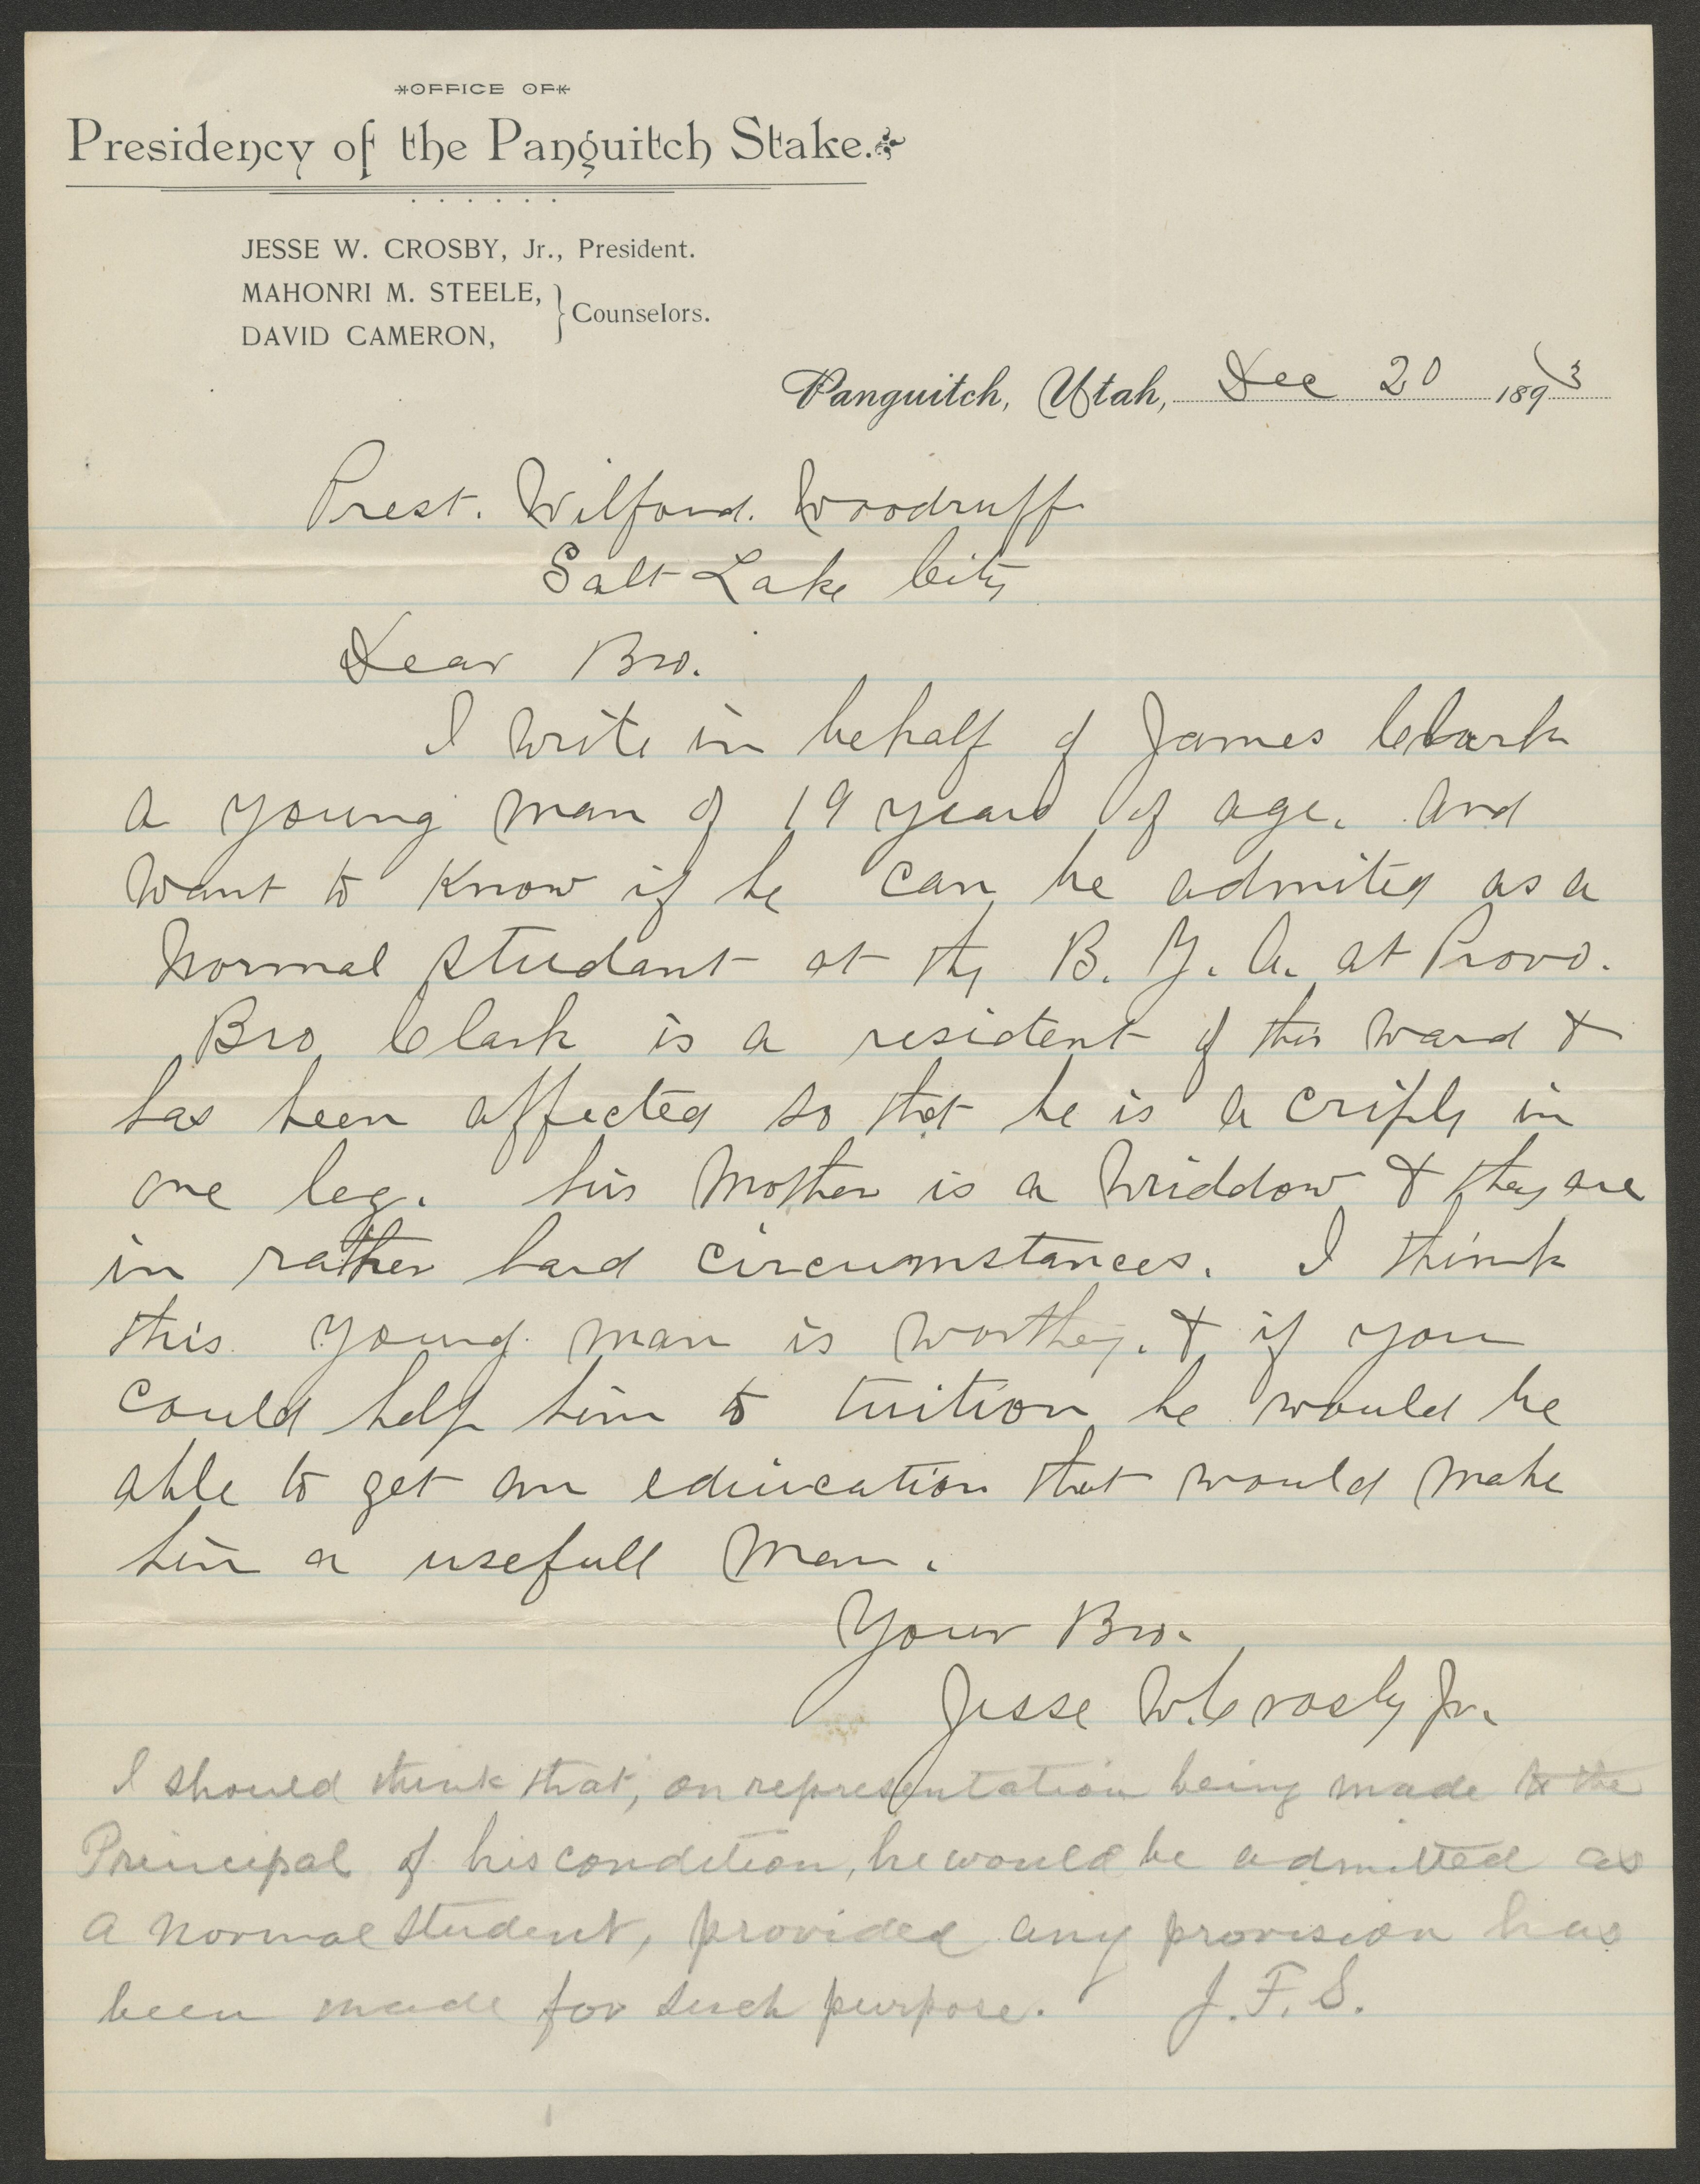 OFFICE OF
Presidency of the Panguitch Stake.
JESSE W. CROSBY, Jr., President.
MAHONRI M. STEELE,
DAVID CAMERON,
} Counselors.
Panguitch, Utah, Dec 20 1893
Prest. Wilford. Woodruff
Salt Lake City
Dear Bro.
I write in behalf of James Clark
a young man of 19 years of age. and
want to know if he can be admited as a
Normal studant at the B. Y. A. at Provo.
Bro Clark is a resident of this ward &
has been affected so that he is a criple in
one leg. his Mother is a widdow & they are
in rather hard circumstances. I think
this young man is worthey. & if you
could help him to tuition he would be
able to get an education that would make
him a usefull man.
Your Bro.
Jesse W. Crosby Jr.
I should think that, on representation being made to the
Principal of his condition, he would be admitted as
a normal student, provided any provision has
been made for such purpose. J. F. S.